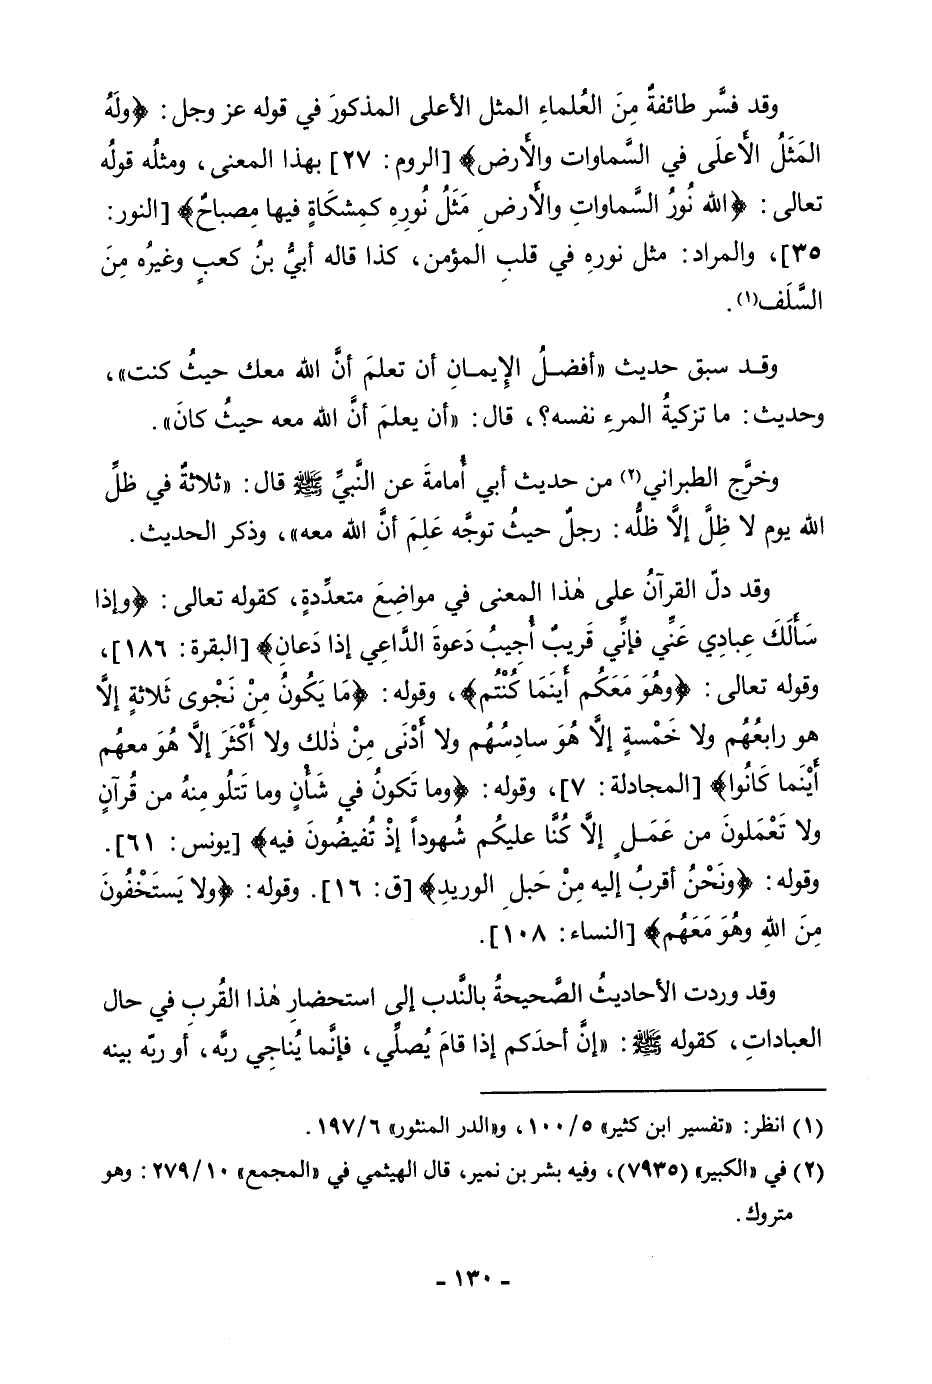 وقد فسَّر طائفةٌ مِنَ العُلماءِ المثل الأعلى المذكورَ في قوله عز وجل : ﴿ولَهُ
المَثَلُ الأَعلَى في السَّماوات والأَرض﴾ [الروم : ٢٧] بهذا المعنى ، ومثلُه قولُه
تعالى : ﴿الله نُورُ السَّماواتِ والأَرضِ مَثَلُ نُورِهِ كمِشكَاةٍ فيها مِصباحٌ﴾ [النور:
٣٥]، والمراد: مثل نورهِ في قلبِ المؤمن، كذا قاله أبيُّ بنُ كعبٍ وغيرُه مِنَ
السَّلَف(١) .
وقد سبق حديث «أفضلُ الإيمانِ أن تعلمَ أنَّ الله معك حيثُ كنت» ،
وحديث: ما تزكيةُ المرءِ نفسه؟ ، قال: «أن يعلمَ أنَّ الله معه حيثُ كانَ» .
وخرَّج الطبراني(٢) من حديث أبي أُمامةَ عن النَّبيِّ ﷺ قال: «ثلاثةٌ في ظلِّ
الله يوم لا ظِلَّ إلاَّ ظلُّه : رجلٌ حيثُ توجَّه عَلِمَ أنَّ الله معه» ، وذكر الحديث .
وقد دلّ القرآنُ على هٰذا المعنى في مواضِعَ متعدِّدةٍ ، كقوله تعالى : ﴿وإذا
سَأَلَكَ عِبادِي عَنِّي فإنِّي قَريبٌ أُجيبُ دَعوةَ الدَّاعِي إذا دَعانِ﴾ [البقرة : ١٨٦]،
وقوله تعالى : ﴿وهُوَ مَعَكُم أَينَمَا كُنْتُم﴾ ، وقوله : ﴿مَا يَكُونُ مِنْ نَجْوى ثَلاثةٍ إلاَّ
هو رابعُهُم ولا خَمْسةٍ إلاَّ هُوَ سادِسُهُم ولا أَدْنَى مِنْ ذٰلك ولا أَكْثَرَ إلاَّ هُوَ معهُم
أَيْنَما كَانُوا﴾ [المجادلة : ٧]، وقوله : ﴿وما تَكونُ في شَأْنٍ وما تَتلُو مِنهُ من قُرآنٍ
ولا تَعْمَلونَ من عَمَلٍ إلاَّ كُنَّا عليكُم شُهوداً إذْ تُفيضُونَ فيه﴾ [يونس : ٦١].
وقوله : ﴿ونَحْنُ أقربُ إليه مِنْ حَبلِ الوريدِ﴾ [ق : ١٦]. وقوله : ﴿ولا يَستَخْفُونَ
مِنَ اللهِ وهُوَ مَعَهُم﴾ [النساء : ١٠٨].
وقد وردت الأحاديثُ الصَّحيحةُ بالنَّدب إلى استحضارِ هٰذا القُربِ في حال
العباداتِ ، كقوله ﷺ : «إنَّ أحدَكم إذا قامَ يُصلِّي ، فإنَّما يُناجِي ربَّه ، أو ربّه بينه
(١) انظر: «تفسير ابن كثير» ١٠٠/٥ ، و«الدر المنثور» ١٩٧/٦ .
(٢) في «الكبير» (٧٩٣٥)، وفيه بشر بن نمير، قال الهيثمي في «المجمع» ٢٧٩/١٠ : وهو
متروك .
- ١٣٠ -